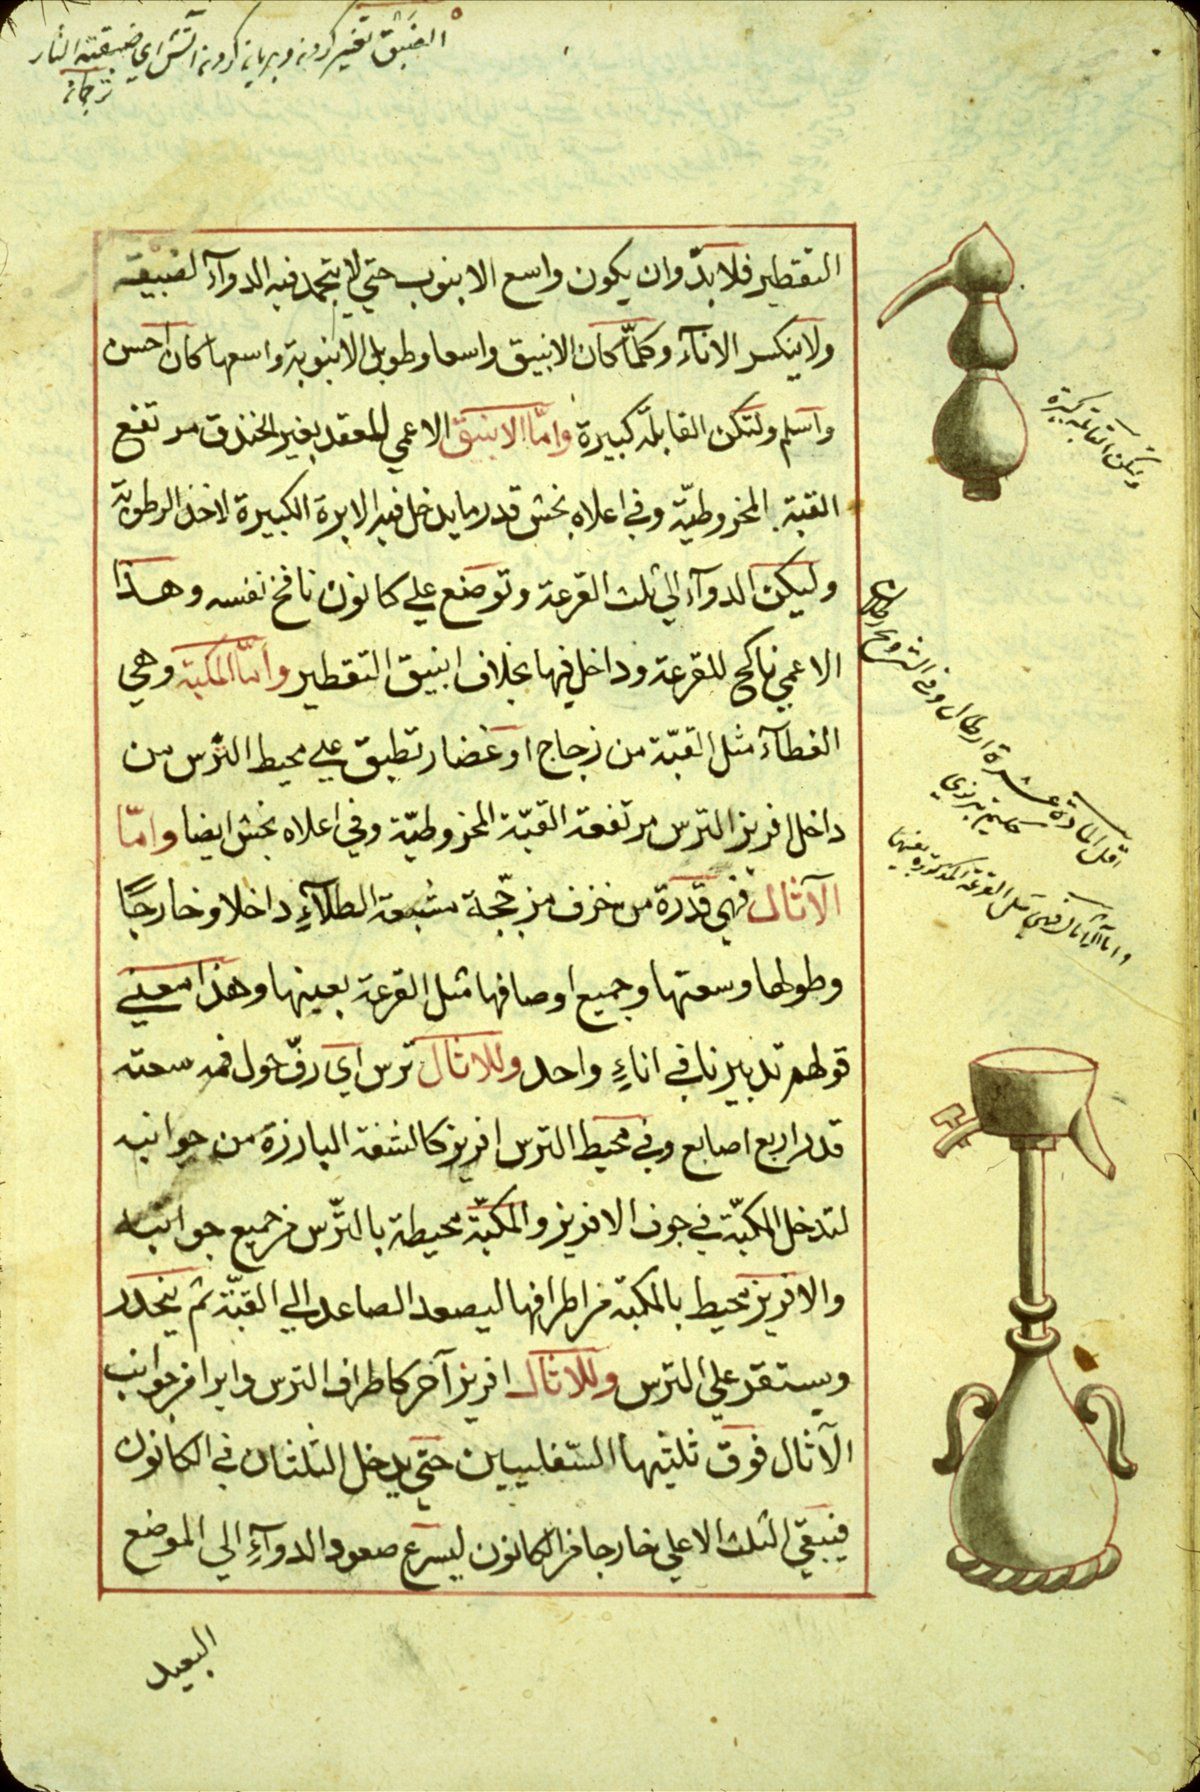 التقطير فلابدّ وان يكون واسع الانبوب حتي لا يتجمد فيه الدوآء لضيقه
ولا ينكسر الانآء وكلّما كان الانبيق واسعا وطويل الانبوبة واسعها كان احسن
واسلم ولتكن القابلة كبيرة وامّا الانبيق الاعمي للعقد بغير الخندق مرتفع
القبة المخروطيّة وفي اعلاه بخش قدر ما يدخل فيه الابرة الكبيرة لاخذ الرطوبة
وليكن الدوآء الي ثلث القرعة وتوضع علي كانون نافخ نفسه وهذا
الاعمي ناكح للقرعة وداخل فيها بخلاف انبيق التقطير وامّا المكبّة وهي
الغطآء مثل القبّة من زجاج او غضار تطبق علي محيط التّرس من
داخل افريز الترس مرتفعة القبّة المخروطيّة وفي اعلاه بخش ايضا وامّا
الآثال فهي قدرة من خزف مزجّجة مشبعة الطلآءِ داخلا وخارجًا
وطولها وسعتها وجميع اوصافها مثل القرعة بعينها وهذا معني
قولهم تدبيرنا في اناءٍ واحد وللاثال ترس اي رفّ حول فمه سعته
قدر اربع اصابع وفي محيط الترس افريز كالشفة البارزة من جوانبه
لتدخل المكبّة في جوف الافريز والمكبّة محيطة بالترّس من جميع جوانبه
والافريز محيط بالمكبة من اطرافها ليصعد الصاعد الي القبّة ثم ينحدر
ويستقر علي الترس وللاثال افريز آخر كاطراف الترس وابرا من جوانب
الآثال فوق ثلثيها السّفليين حتي يدخل الثلثان في الكانون
فيبقي الثلث الاعلي خارجا من الكانون ليسرع صعود الدوآءِ الي الموضع
البعيد
ولتكن القابلة كبيرة
اقل المادة عشرة ارطال وفي الشروح
واما الآثال فهي مثل القرعة المذكورة بعينها